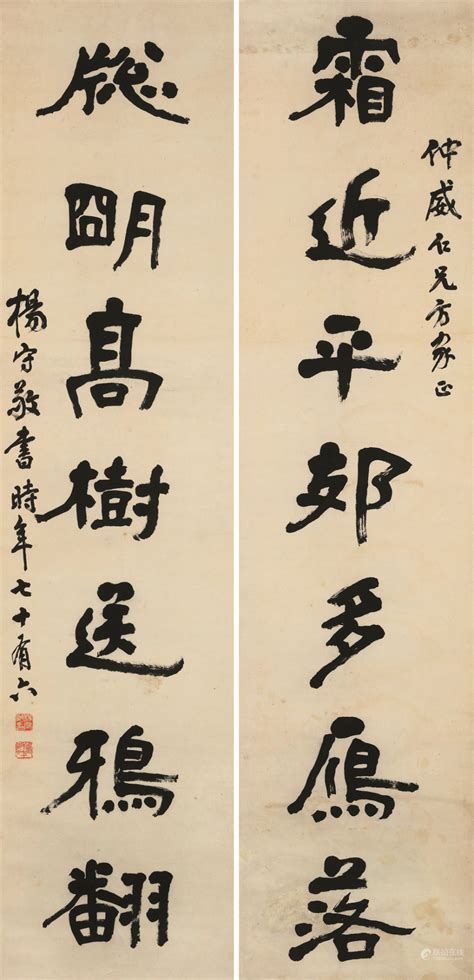 仲威仁兄方家正
霜近平郊多鴈落
牎朙髙樹送鴉翻
楊守敬書時年七十有六